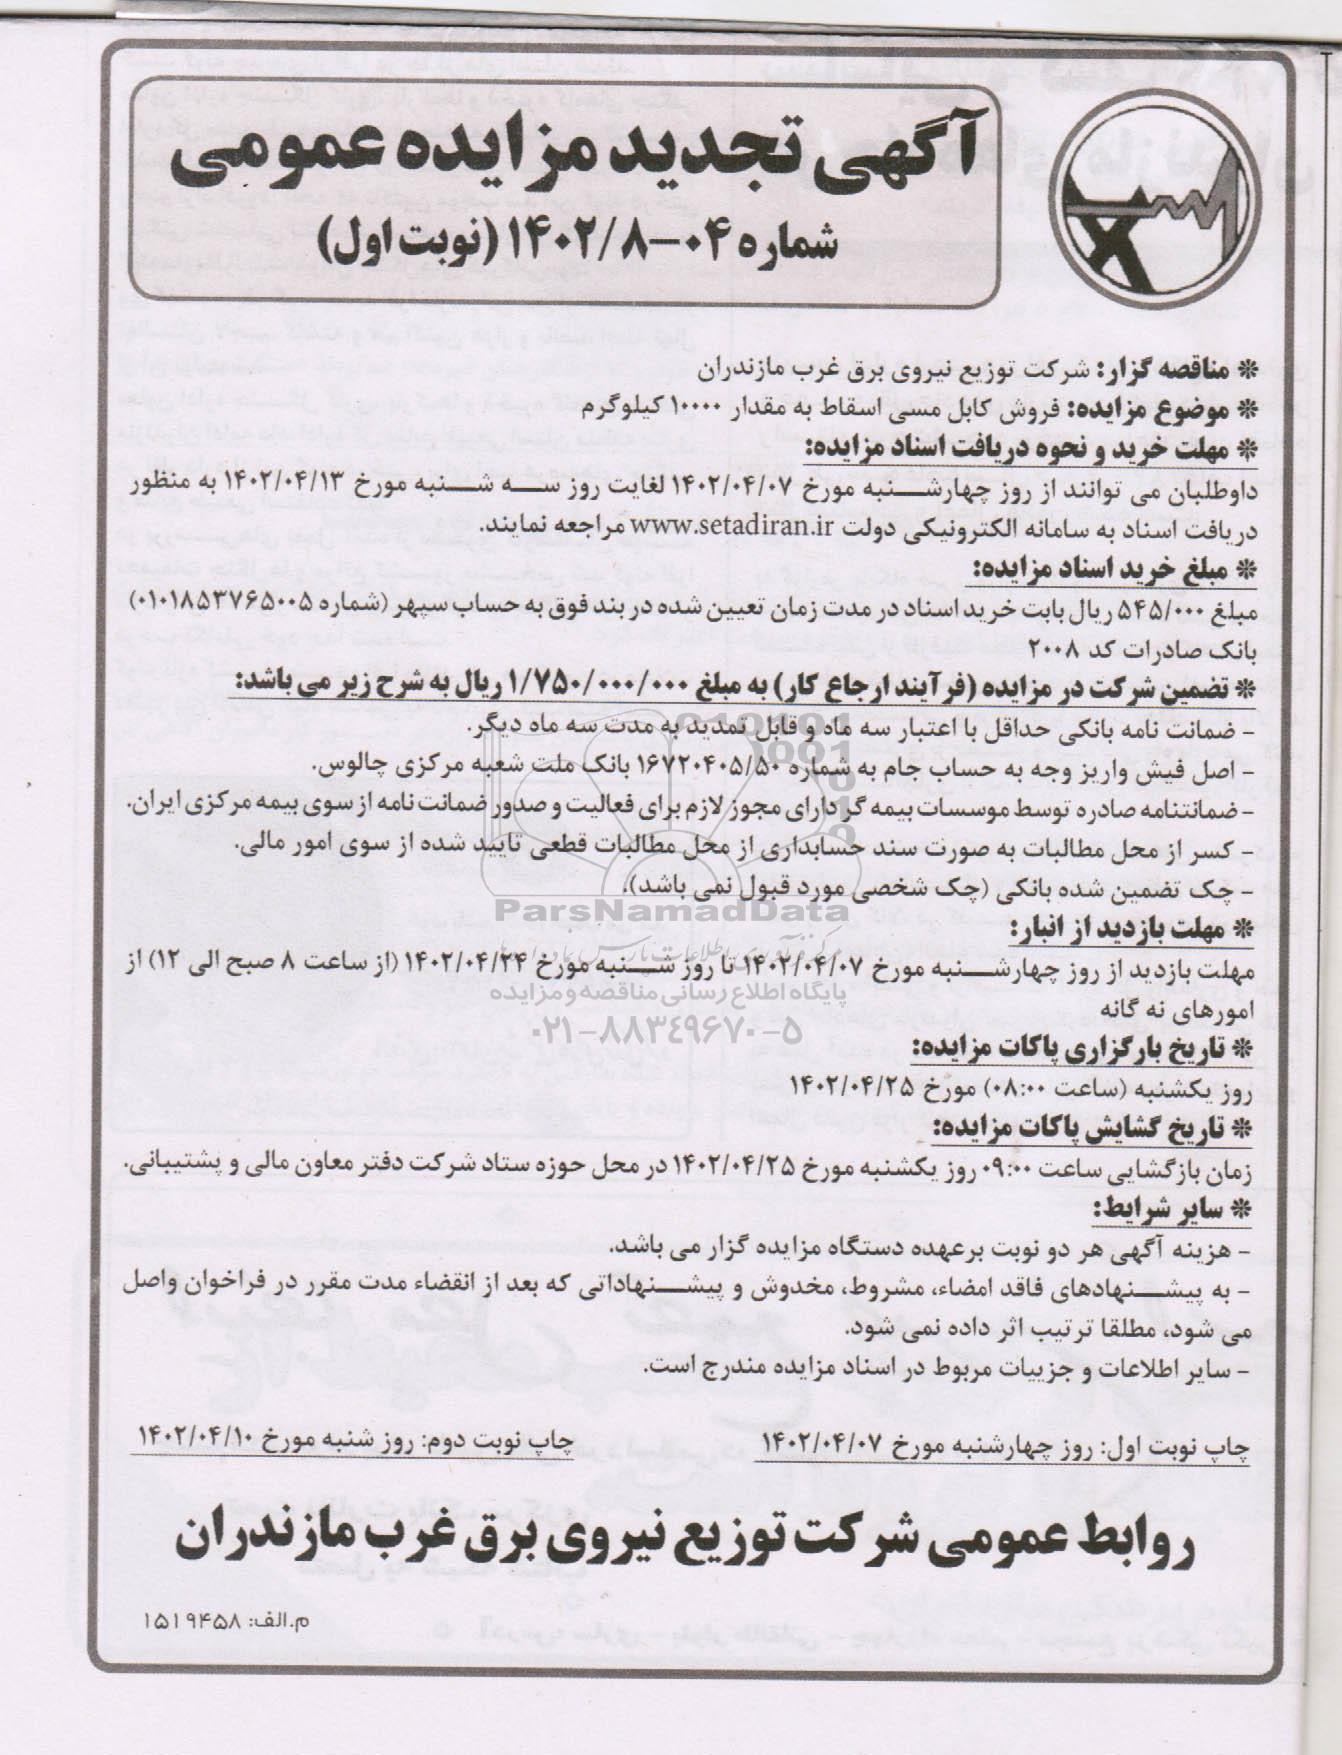 آگهی تجدید مزایده عمومی
شماره ۰۴-۱۴۰۲/۸ (نوبت اول)
❊ مناقصه گزار: شرکت توزیع نیروی برق غرب مازندران
❊ موضوع مزایده: فروش کابل مسی اسقاط به مقدار ۱۰۰۰۰ کیلوگرم
❊ مهلت خرید و نحوه دریافت اسناد مزایده:
داوطلبان می توانند از روز چهارشنبه مورخ ۱۴۰۲/۰۴/۰۷ لغایت روز سه شنبه مورخ ۱۴۰۲/۰۴/۱۳ به منظور
دریافت اسناد به سامانه الکترونیکی دولت www.setadiran.ir مراجعه نمایند.
❊ مبلغ خرید اسناد مزایده:
مبلغ ۵۴۵/۰۰۰ ریال بابت خرید اسناد در مدت زمان تعیین شده در بند فوق به حساب سپهر (شماره ۰۱۰۱۸۵۳۷۶۵۰۰۵)
بانک صادرات کد ۲۰۰۸
❊ تضمین شرکت در مزایده (فرآیند ارجاع کار) به مبلغ ۱/۷۵۰/۰۰۰/۰۰۰ ریال به شرح زیر می باشد:
- ضمانت نامه بانکی حداقل با اعتبار سه ماه و قابل تمدید به مدت سه ماه دیگر.
- اصل فیش واریز وجه به حساب جام به شماره ۱۶۷۲۰۴۰۵/۵۰ بانک ملت شعبه مرکزی چالوس.
- ضمانتنامه صادره توسط موسسات بیمه گر دارای مجوز لازم برای فعالیت و صدور ضمانت نامه از سوی بیمه مرکزی ایران.
- کسر از محل مطالبات به صورت سند حسابداری از محل مطالبات قطعی تایید شده از سوی امور مالی.
- چک تضمین شده بانکی (چک شخصی مورد قبول نمی باشد).
ParsNamadData
❊ مهلت بازدید از انبار:
مهلت بازدید از روز چهارشنبه مورخ ۱۴۰۲/۰۴/۰۷ تا روز شنبه مورخ ۱۴۰۲/۰۴/۲۴ (از ساعت ۸ صبح الی ۱۲) از
پایگاه اطلاع رسانی مناقصه و مزایده
امورهای نه گانه
۰۲۱-۸۸۳۴۹۶۷۰-۵
❊ تاریخ بارگزاری پاکات مزایده:
روز یکشنبه (ساعت ۰۸:۰۰) مورخ ۱۴۰۲/۰۴/۲۵
❊ تاریخ گشایش پاکات مزایده:
زمان بازگشایی ساعت ۰۹:۰۰ روز یکشنبه مورخ ۱۴۰۲/۰۴/۲۵ در محل حوزه ستاد شرکت دفتر معاون مالی و پشتیبانی.
❊ سایر شرایط:
- هزینه آگهی هر دو نوبت برعهده دستگاه مزایده گزار می باشد.
- به پیشنهادهای فاقد امضاء، مشروط، مخدوش و پیشنهاداتی که بعد از انقضاء مدت مقرر در فراخوان واصل
می شود، مطلقا ترتیب اثر داده نمی شود.
- سایر اطلاعات و جزییات مربوط در اسناد مزایده مندرج است.
چاپ نوبت اول: روز چهارشنبه مورخ ۱۴۰۲/۰۴/۰۷
چاپ نوبت دوم: روز شنبه مورخ ۱۴۰۲/۰۴/۱۰
روابط عمومی شرکت توزیع نیروی برق غرب مازندران
م.الف: ۱۵۱۹۴۵۸